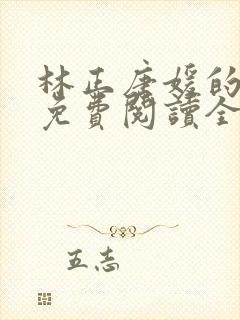 林正唐媛的
免費閱讀全
五志